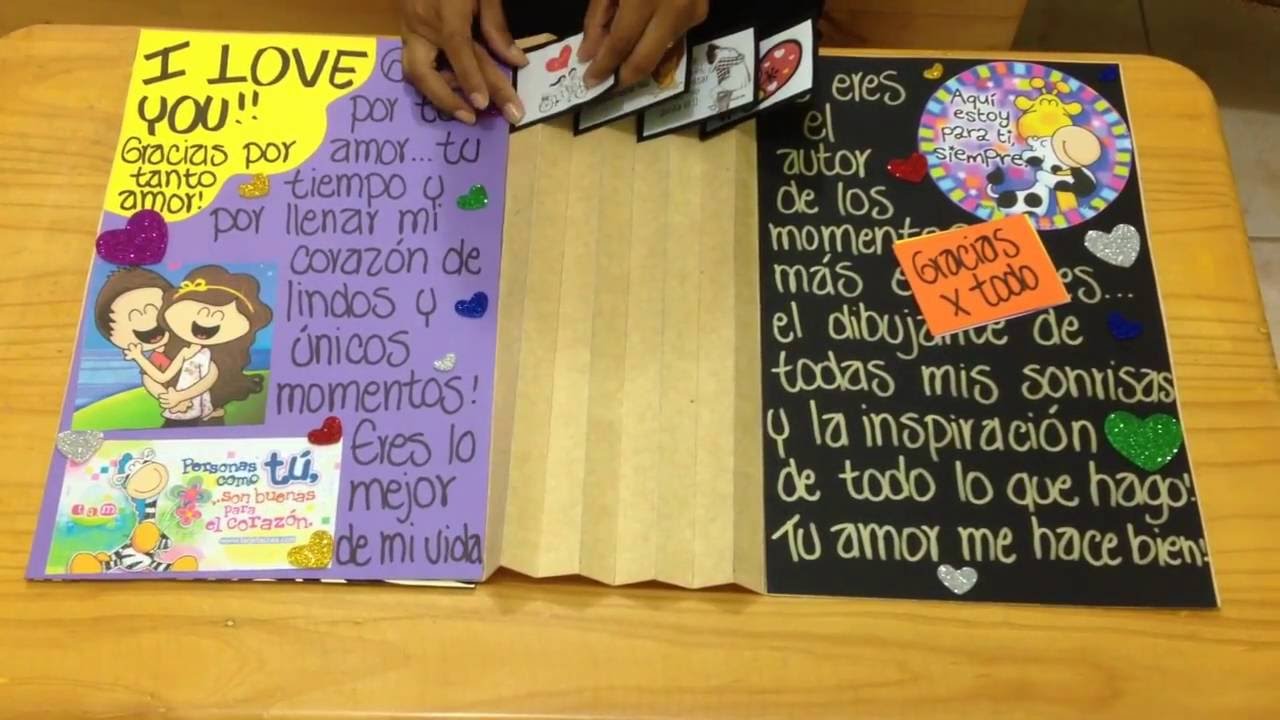 I LOVE
YOU!!
Gracias por
tanto
amor!
por
amor... tu
tiempo y
por llenar mi
corazón de
lindos y
únicos
momentos!
Eres lo
mejor
de mi vida
Personas
como tú,
...son buenas
para
el corazón.
tqm
eres
el
autor
de los
más
el de
todas mis sonrisas
y la inspiración
de todo lo que hago!
Tu amor me hace bien!
Aquí
estoy
para ti,
siempre.
Gracias
x todo